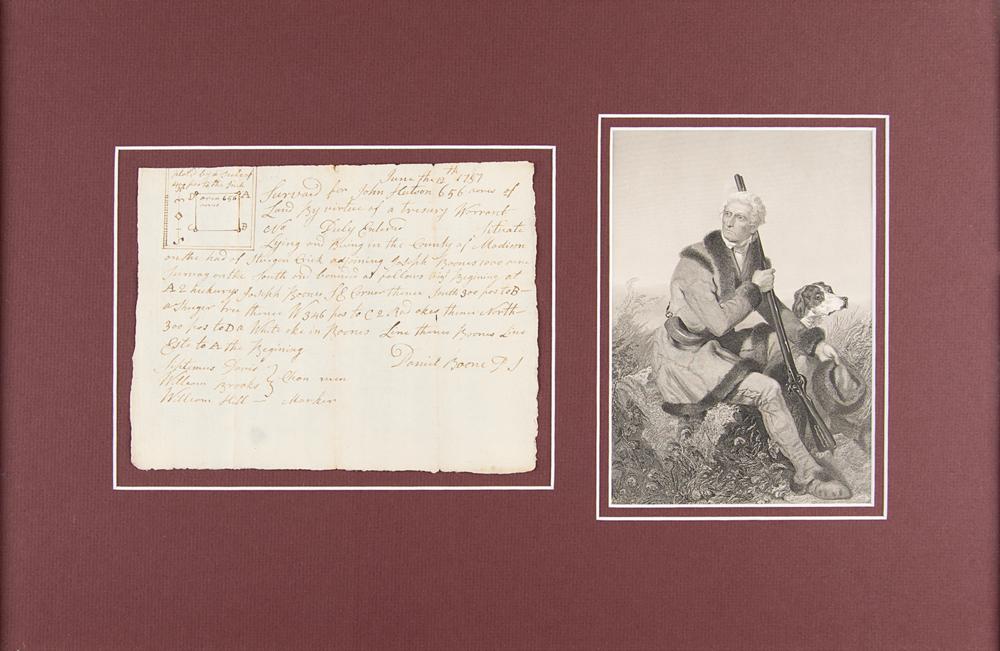 plot by a scale of
pos to the Inch
D
A
area 656
acres
B
June the 12th 1787
Survaid for John Hutson 656 acres of
Land By virtue of a tresury Worrant
No Duly Entered Situate
Lying and Being in the County of Madison
on the head of Sturgen Crick adjoining Joseph Boones 1000 acre
Survay on the South and bounded as follows Begining at
A 2 hickurys Joseph Boones S E Corner thence South 300 pos to B
a Shuger tree thence W 346 pos to C 2 Rad okes thence North
300 pos to D a White oke in Boones Line thence Boones Line
Este to A the Begining
Daniel Boone D S
Septimus Davis
William Brooks } Chan men
William Hill — Marker